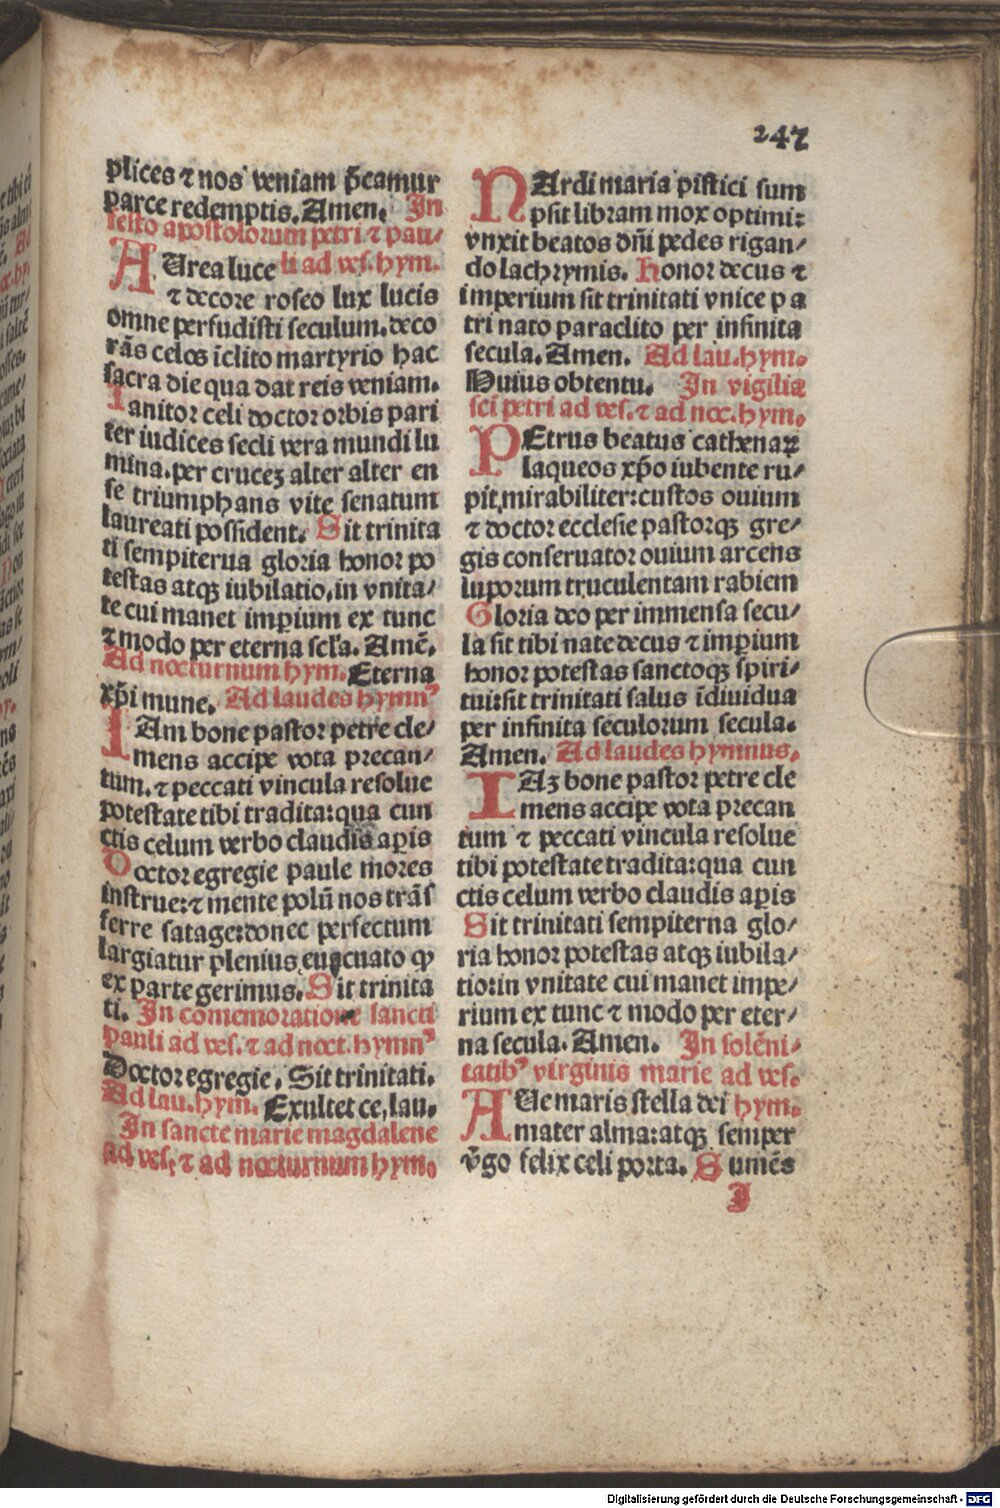 247
plices ⁊ nos veniam p̄camur
parce redemptis. Amen. In
festo apostolorum petri ⁊ pau⸗
AUrea luce li ad ves. hym.
⁊ decore roseo lux lucis
omne perfudisti seculum. deco
rās celos īclito martyrio hac
sacra die qua dat reis veniam.
Ianitor celi doctor orbis pari
ter iudices secli vera mundi lu
mina. per cruceꝫ alter alter en
se triumphans vite senatum
laureati possident. Sit trinita
ti sempiterua gloria honor po
testas atqꝫ iubilatio, in vnita⸗
te cui manet imꝑium ex tunc
⁊ modo per eterna scl'a. Amē.
Ad nocturnum hym. Eterna
xp̄i mune. Ad laudes hymnꝰ
IAm bone pastor petre cle⸗
mens accipe vota precan⸗
tum. ⁊ peccati vincula resolue
potestate tibi tradita: qua cun
ctis celum verbo claudis aꝑis
Doctor egregie paule mores
instrue: ⁊ mente polū nos trās
ferre satage: donec perfectum
largiatur plenius euacuato ꝙ
ex parte gerimus. Sit trinita
ti. In comemoratione sancti
pauli ad ves. ⁊ ad noct. hymnꝰ
Doctor egregie. Sit trinitati.
Ad lau. hym. Exultet ce, lau.
In sancte marie magdalene
ad ves, ⁊ ad nocturnum hym.
NArdi maria pistici sum
psit libram mox optimi:
vnxit beatos dn̄i pedes rigan⸗
do lachrymis. Honor decus ⁊
imperium sit trinitati vnice pa
tri nato paraclito per infinita
secula. Amen. Ad lau. hym.
Huius obtentu. In vigilia
sci petri ad ves. ⁊ ad noc. hym.
PEtrus beatus cathenaꝝ
laqueos xp̄o iubente ru⸗
pit mirabiliter: custos ouium
⁊ doctor ecclesie pastorqꝫ gre⸗
gis conseruator ouium arcens
luporum truculentam rabiem
Gloria deo per immensa secu⸗
la sit tibi nate decus ⁊ imꝑium
honor potestas sanctoqꝫ spiri⸗
tui: sit trinitati salus īdiuidua
per infinita seculorum secula.
Amen. Ad laudes hymnus.
IAꝫ bone pastor petre cle
mens accipe vota precan
tum ⁊ peccati vincula resolue
tibi potestate tradita: qua cun
ctis celum verbo claudis aꝑis
Sit trinitati sempiterna glo⸗
ria honor potestas atqꝫ iubila⸗
tio: in vnitate cui manet impe⸗
rium ex tunc ⁊ modo per eter⸗
na secula. Amen. In solēni⸗
tatibꝰ virginis marie ad ves.
AUe maris stella dei hym.
mater alma: atqꝫ semper
v̄go felix celi porta. Sumēs
I
Digitalisierung gefördert durch die Deutsche Forschungsgemeinschaft - DFG